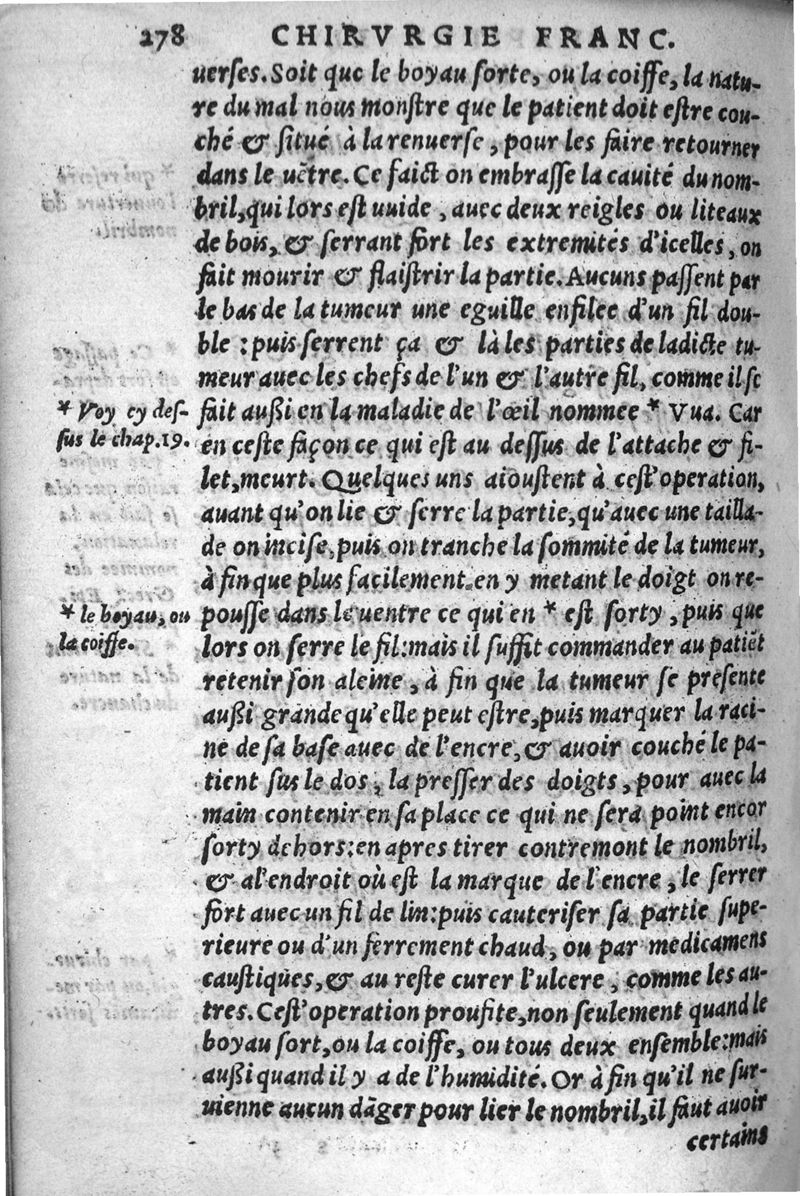 278 CHIRVRGIE FRANC.
uerses. Soit que le boyau sorte, ou la coiffe, la natu-
re du mal nous monstre que le patient doit estre cou-
ché & situé à la renuerse, pour les faire retourner
dans le uẽtre. Ce faict on embrasse la cauité du nom-
bril, qui lors est uuide, auec deux reigles ou liteaux
de bois, & serrant fort les extremités d'icelles, on
fait mourir & flaistrir la partie. Aucuns passent par
le bas de la tumeur une eguille enfilee d'un fil dou-
ble : puis serrent ça & là les parties de ladicte tu-
meur auec les chefs de l'un & l'autre fil, comme il se
fait außi en la maladie de l'œil nommee * Vua. Car
* Voy cy des-
sus le chap. 19.
en ceste façon ce qui est au dessus de l'attache & fi-
let, meurt. Quelques uns aioustent à cest' operation,
auant qu'on lie & serre la partie, qu'auec une tailla-
de on incise, puis on tranche la sommité de la tumeur,
à fin que plus facilement en y metant le doigt on re-
pousse dans le uentre ce qui en * est sorty, puis que
* le boyau, ou
la coiffe.
lors on serre le fil: mais il suffit commander au patiẽt
retenir son aleine, à fin que la tumeur se presente
außi grande qu'elle peut estre, puis marquer la raci-
ne de sa base auec de l'encre, & auoir couché le pa-
tient sus le dos, la presser des doigts, pour auec la
main contenir en sa place ce qui ne sera point encor
sorty dehors: en apres tirer contremont le nombril,
& al'endroit où est la marque de l'encre, le serrer
fort auec un fil de lin: puis cauteriser sa partie supe-
rieure ou d'un ferrement chaud, ou par medicamens
caustiques, & au reste curer l'ulcere, comme les au-
tres. Cest' operation proufite, non seulement quand le
boyau sort, ou la coiffe, ou tous deux ensemble: mais
außi quand il y a de l'humidité. Or à fin qu'il ne sur-
uienne aucun dãger pour lier le nombril, il faut auoir
certains